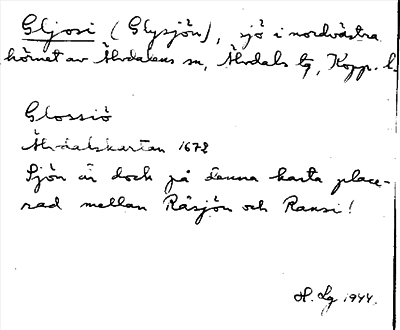 Gljosi (Glysjön), sjö i nordvästra
hörnet av Älvdalens sn, Älvdals tg, Kopp. l.
Glossiö
Älvdalskartan 1672
Sjön är dock på denna karta place-
rad mellan Råsjön och Ransi!
H. Lg 1944.